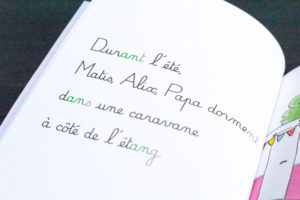 Durant l'été,
Matis, Alix, Papa dorment
dans une caravane
à côté de l'étang.